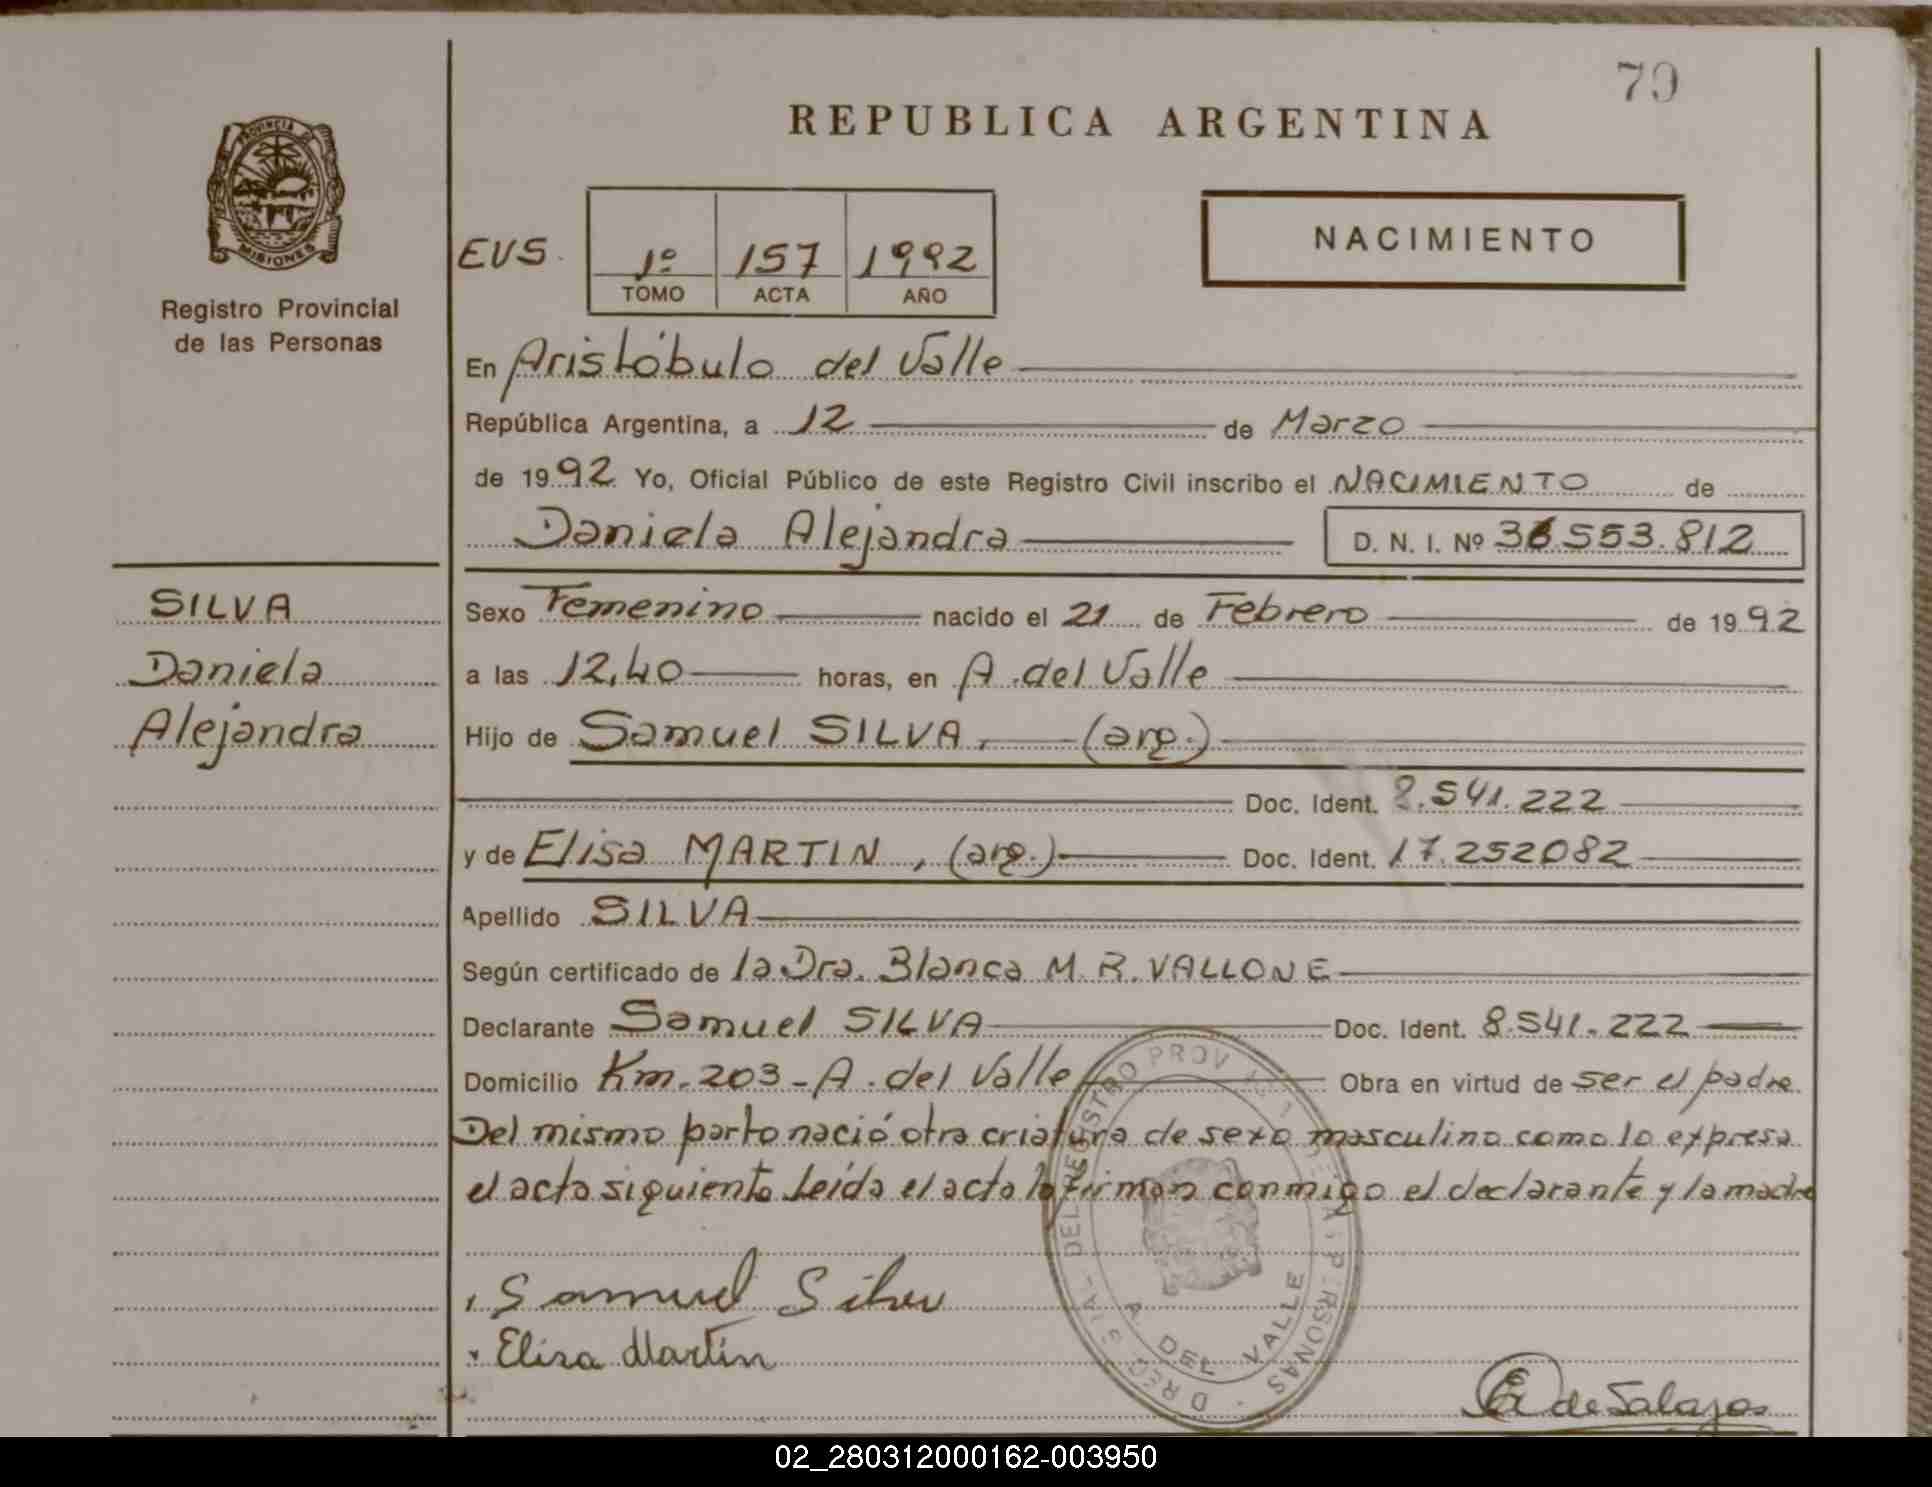 79
REPUBLICA ARGENTINA
PROVINCIA DE
MISIONES
Registro Provincial
de las Personas
NACIMIENTO
EVS. 1º 157 1992
TOMO ACTA AÑO
En Aristóbulo del Valle
República Argentina, a 12 de Marzo
de 1992 Yo, Oficial Público de este Registro Civil inscribo el NACIMIENTO de
Daniela Alejandra D. N. I. Nº 36.553.812
SILVA
Daniela
Alejandra
Sexo Femenino nacido el 21 de Febrero de 1992
a las 12,40 horas, en A. del Valle
Hijo de Samuel SILVA, (arg.)
Doc. Ident. 8.541.222
y de Elisa MARTIN, (arg.) Doc. Ident. 17.252082
Apellido SILVA
Según certificado de la Dra. Blanca M. R. VALLONE
Declarante Samuel SILVA Doc. Ident. 8.541.222
Domicilio Km. 203 - A. del Valle Obra en virtud de ser el padre
Del mismo parto nació otra criatura de sexo masculino como lo expresa
el acta siguiente leída el acta la firman conmigo el declarante y la madre
Samuel Silva
Elisa Martín
de Salazar
DEL REGISTRO PROV DE LAS PERSONAS
A. DEL VALLE
02_280312000162-003950